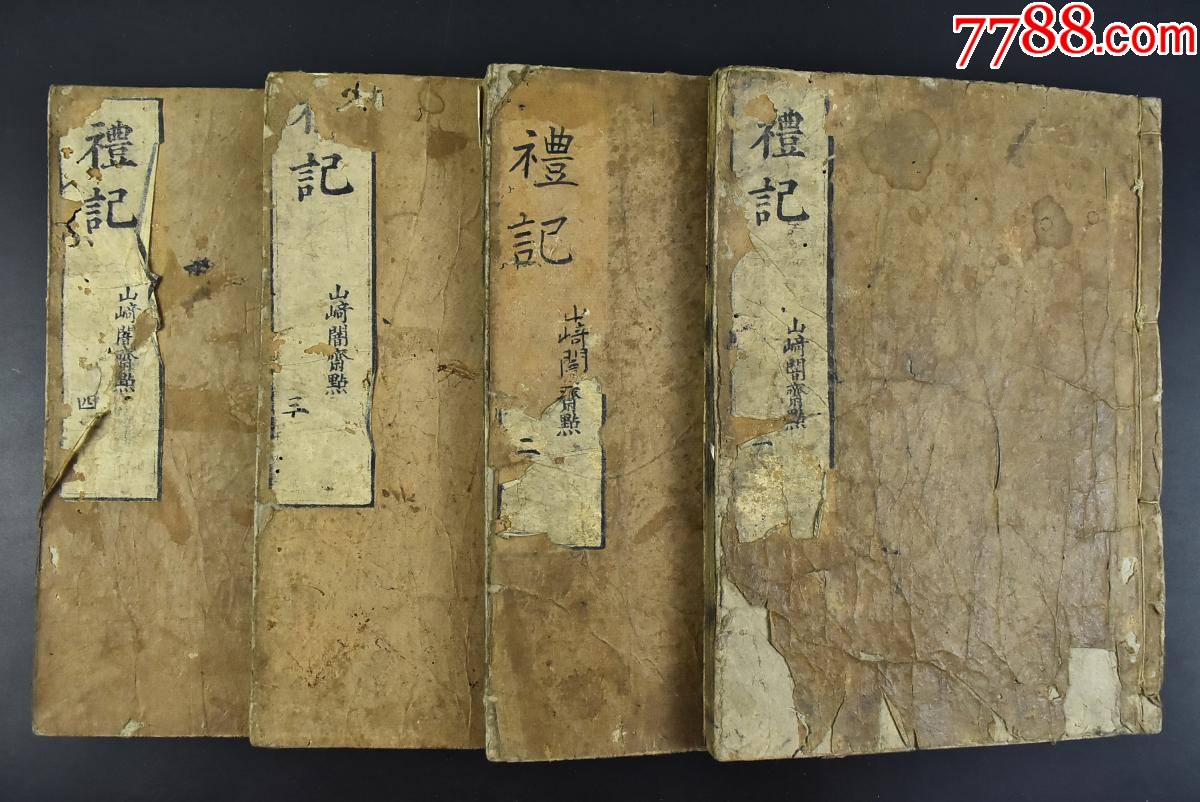 7788.com
禮記
山﨑闇齋點
一
禮記
山﨑闇齋點
二
記
山﨑闇齋點
三
禮記
山﨑闇齋點
四